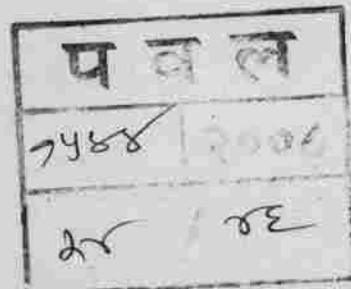 प व ल
१५४४ | २००८
/ ४६